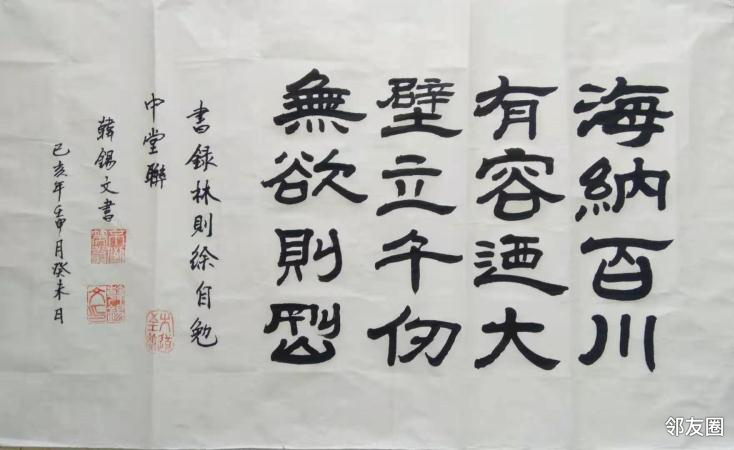 海納百川
有容迺大
壁立千仞
無欲則剛
書録林則徐自勉
中堂聯
韓錫文書
己亥年壬申月癸未日
邻友圈